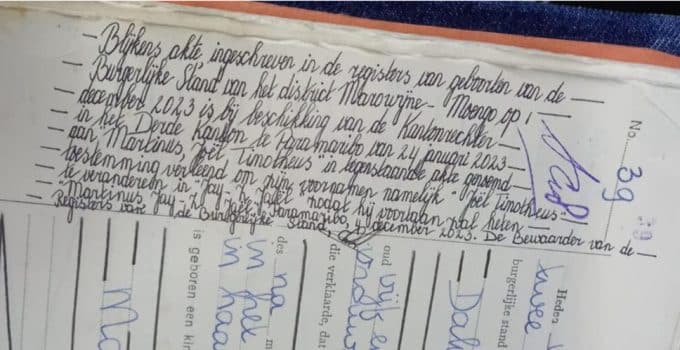 Blijkens akte, ingeschreven in de registers van geboorten van de
Burgerlijke Stand van het district Marowijne - Moengo op 1
december 2023 is bij beschikking van de Kantonrechter
in het Derde Kanton te Paramaribo van 24 januari 2023
aan "Martinus Joël Timotheus" in tegenstaande akte genoemd
toestemming verleend om zijn voornamen namelijk "Joël Timotheus"
te veranderen in "Jay - Z Jafet" zodat hij voortaan zal heten
"Martinus Jay - Z Jafet". Paramaribo, 4 december 2023. De Bewaarder van de
Registers van de Burgerlijke Stand,
No. 39
39
Heden
twee
burgerlijke stand
Dah
oud vijf en
die verklaarde, dat
des na
in het
in haa
is geboren een kin
Ma